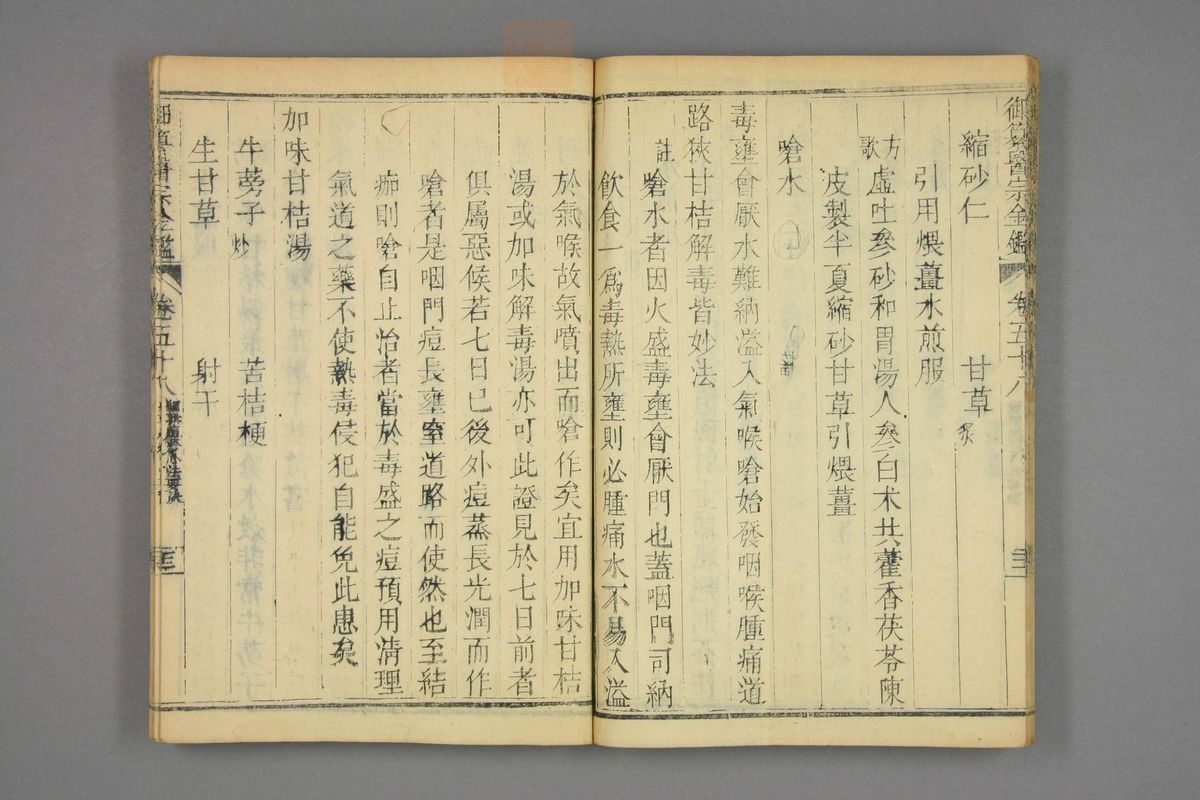 御纂醫宗金鑑 卷五十八
縮砂仁 甘草炙
引用煨薑水煎服
方歌 虛吐參砂和胃湯人參白朮共藿香茯苓陳
皮製半夏縮砂甘草引煨薑
嗆水
毒壅會厭水難納溢入氣喉嗆始發咽喉腫痛道
路狹甘桔解毒皆妙法
註 嗆水者因火盛毒壅會厭門也蓋咽門司納
飲食一爲毒熱所壅則必腫痛水不易入溢
於氣喉故氣噴出而嗆作矣宜用加味甘桔
湯或加味解毒湯亦可此證見於七日前者
俱屬惡候若七日已後外痘蒸長光潤而作
嗆者是咽門痘長壅窒道路而使然也至結
痂則嗆自止怡者當於毒盛之痘預用清理
氣道之藥不使熱毒侵犯自能免此患矣
加味甘桔湯
牛蒡子炒 苦桔梗
生甘草 射干
御纂醫宗金鑑 卷五十八